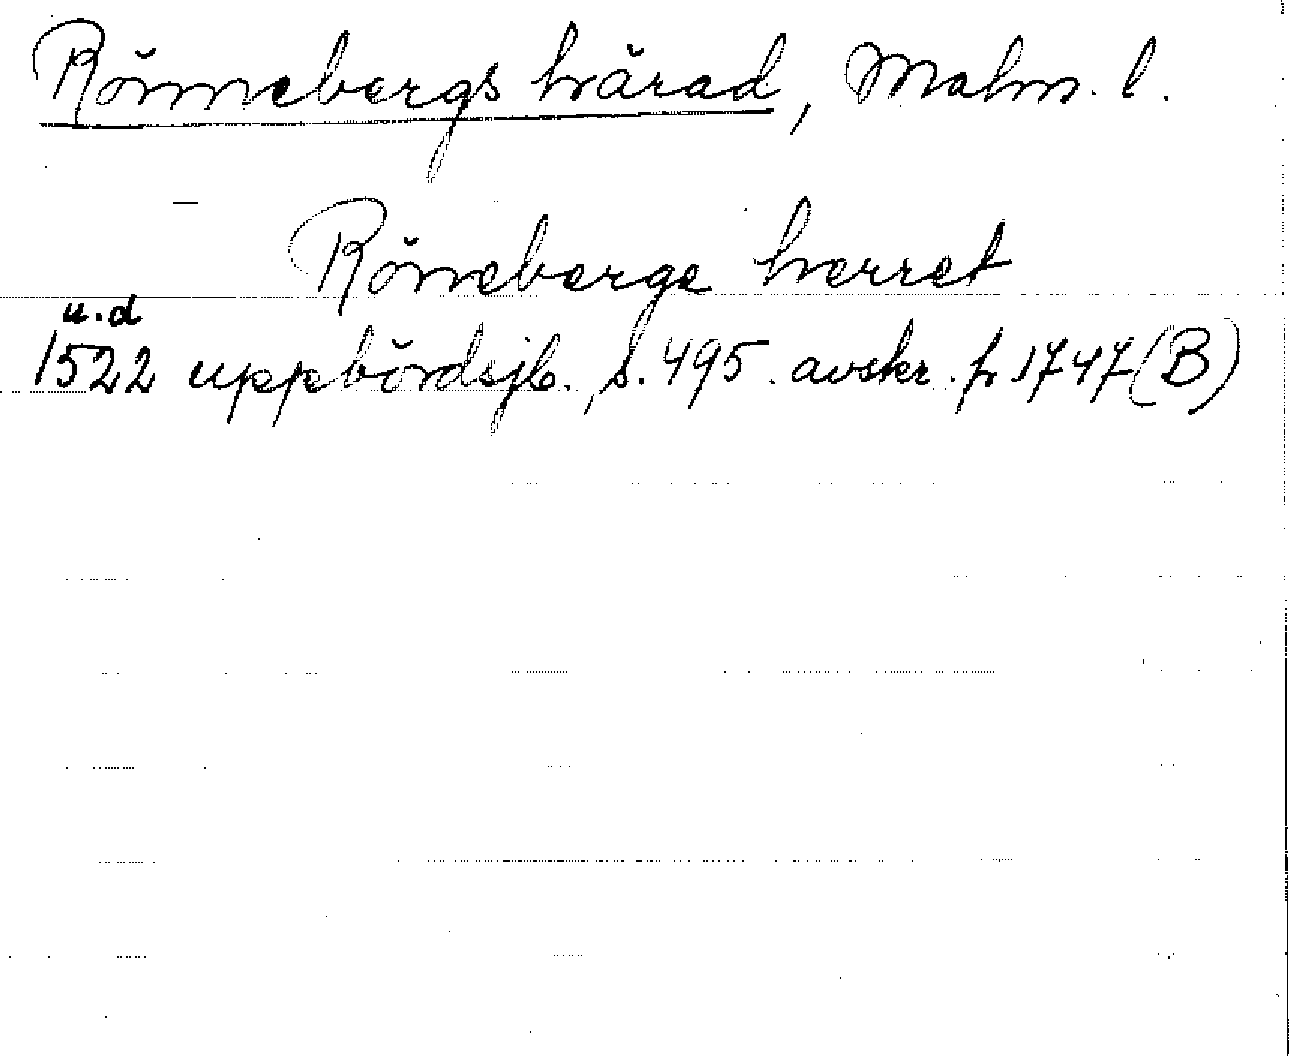 Rönnebergs härad, Malm. l.
Röneberge herret
u.d
1522 uppbördsjb., s. 495. avskr. fr 1747 (B)